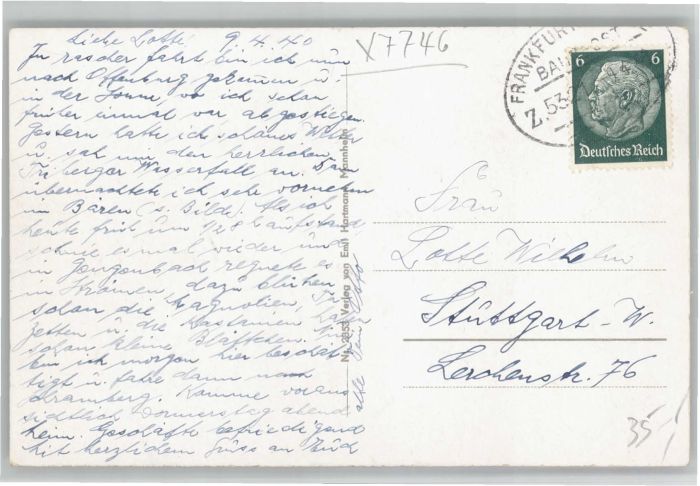 Liebe Lotte 9.4.40
In rascher Fahrt bin ich nun
nach Offenburg gekommen u.
in der Sonne, wo ich schon
früher einmal war abgestiegen.
Gestern hatte ich schönes Wetter
u. sah mir den herrlichen
Triberger Wasserfall an. Dann
übernachtete ich sehr vornehm
im Bären (s. Bild). Als ich
heute früh um 1/2 8 h aufstand
schneie es mal wieder und
in Gengenbach regnete es
in Strömen, dazu blühen
schon die Magnolien,
u. die Kastanien haben
schon kleine Blättchen.
bin ich morgen hier beschäf
tigt u. fahre dann nach
Schramberg. Komme voraus
sichtlich Donnerstag abend
heim. Geschäfte befriedigend
Mit herzlichem Gruss an Euch
alle Dein Otto
Nr. 2853 Verlag von Emil Hartmann, Mannheim
X7746
FRANKFURT
BAHNPOST
Z. 53
6 6
Deutsches Reich
Frau
Lotte Wilhelm
Stuttgart-W.
Lerchenstr. 76
35.-